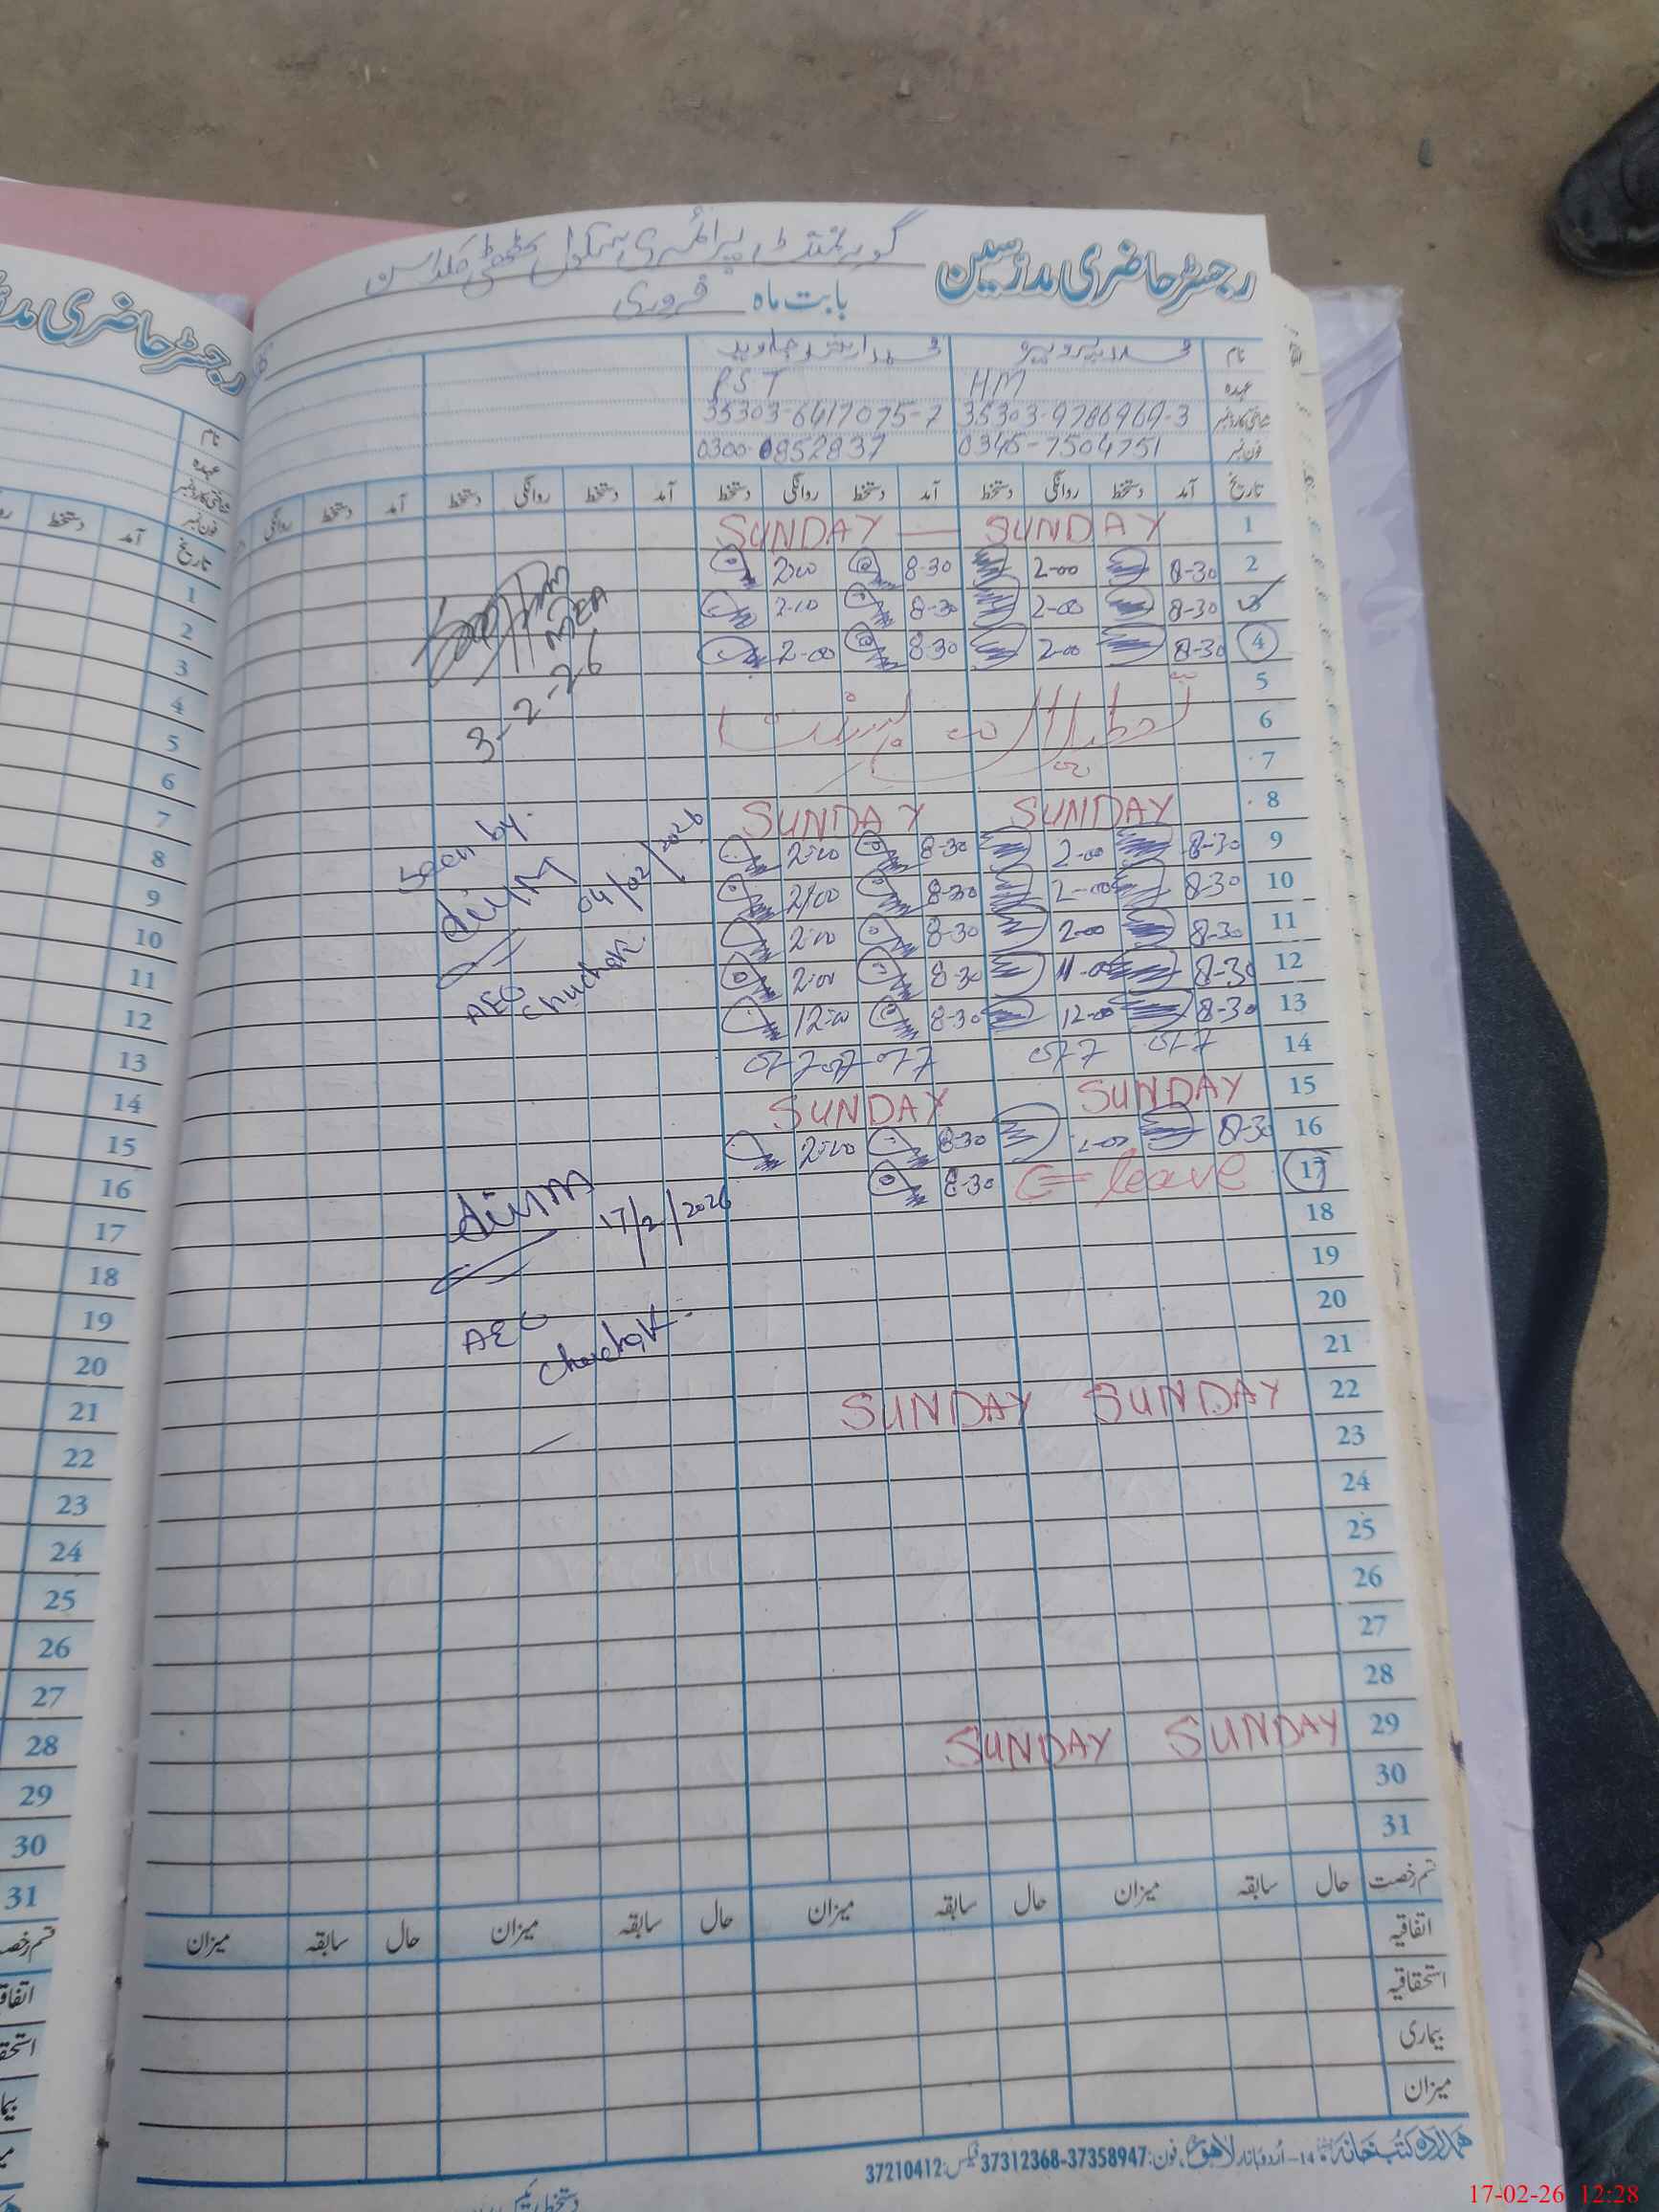 رجسٹر حاضری مدرسین گورنمنٹ پرائمری سکول بھٹی
بابت ماہ فروری
نام
عہدہ HM PST
شناختی کارڈ نمبر 35303-9786969-3 35303-6417075-7
فون نمبر 0345-7504751 0300-0852837
تاریخ آمد دستخط روانگی دستخط آمد دستخط روانگی دستخط آمد دستخط روانگی دستخط آمد دستخط روانگی
1 SUNDAY — SUNDAY
2 8-30 2-00 8-30 2-00
3 8-30 2-00 8-30 2-00
4 8-30 2-00 8-30 2-00
MEA
3-2-26
5
6
7
8 SUNDAY SUNDAY
9 8-30 2-00 8-30 2-00
10 8-30 2-00 8-30 2-00
11 8-30 2-00 8-30 2-00
12 8-30 11-00 8-30 2-00
13 8-30 12-00 8-30 12-00
Seen by:
04/02/2026
AEO
Chuchak
14 off off off off off
15 SUNDAY SUNDAY
16 8-30 2-00 8-30 2-00
17 C= leave 8-30
17/2/2026
AEO
Chuchak
18
19
20
21
22 SUNDAY SUNDAY
23
24
25
26
27
28
29 SUNDAY SUNDAY
30
31
قسم رخصت حال سابقہ میزان حال سابقہ میزان حال سابقہ میزان حال سابقہ میزان
اتفاقیہ
استحقاقیہ
بیماری
میزان
ہمدرد کتب خانہ 14-اُردو بازار لاہور فون: 37312368-37358947 فیکس: 37210412
رجسٹر حاضری
نام
عہدہ
شناختی کارڈ نمبر
فون نمبر
تاریخ آمد دستخط
1
2
3
4
5
6
7
8
9
10
11
12
13
14
15
16
17
18
19
20
21
22
23
24
25
26
27
28
29
30
31
17-02-26 12:28